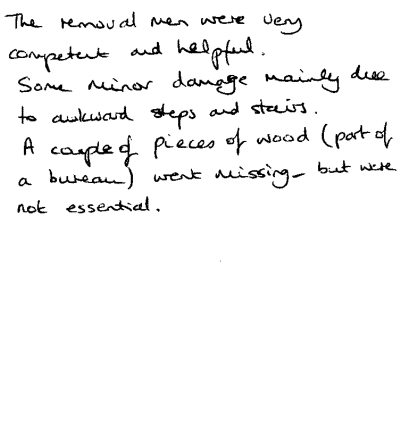 The removal men were very
competent and helpful.
Some minor damage mainly due
to awkward steps and stairs.
A couple of pieces of wood (part of
a bureau) went missing - but were
not essential.